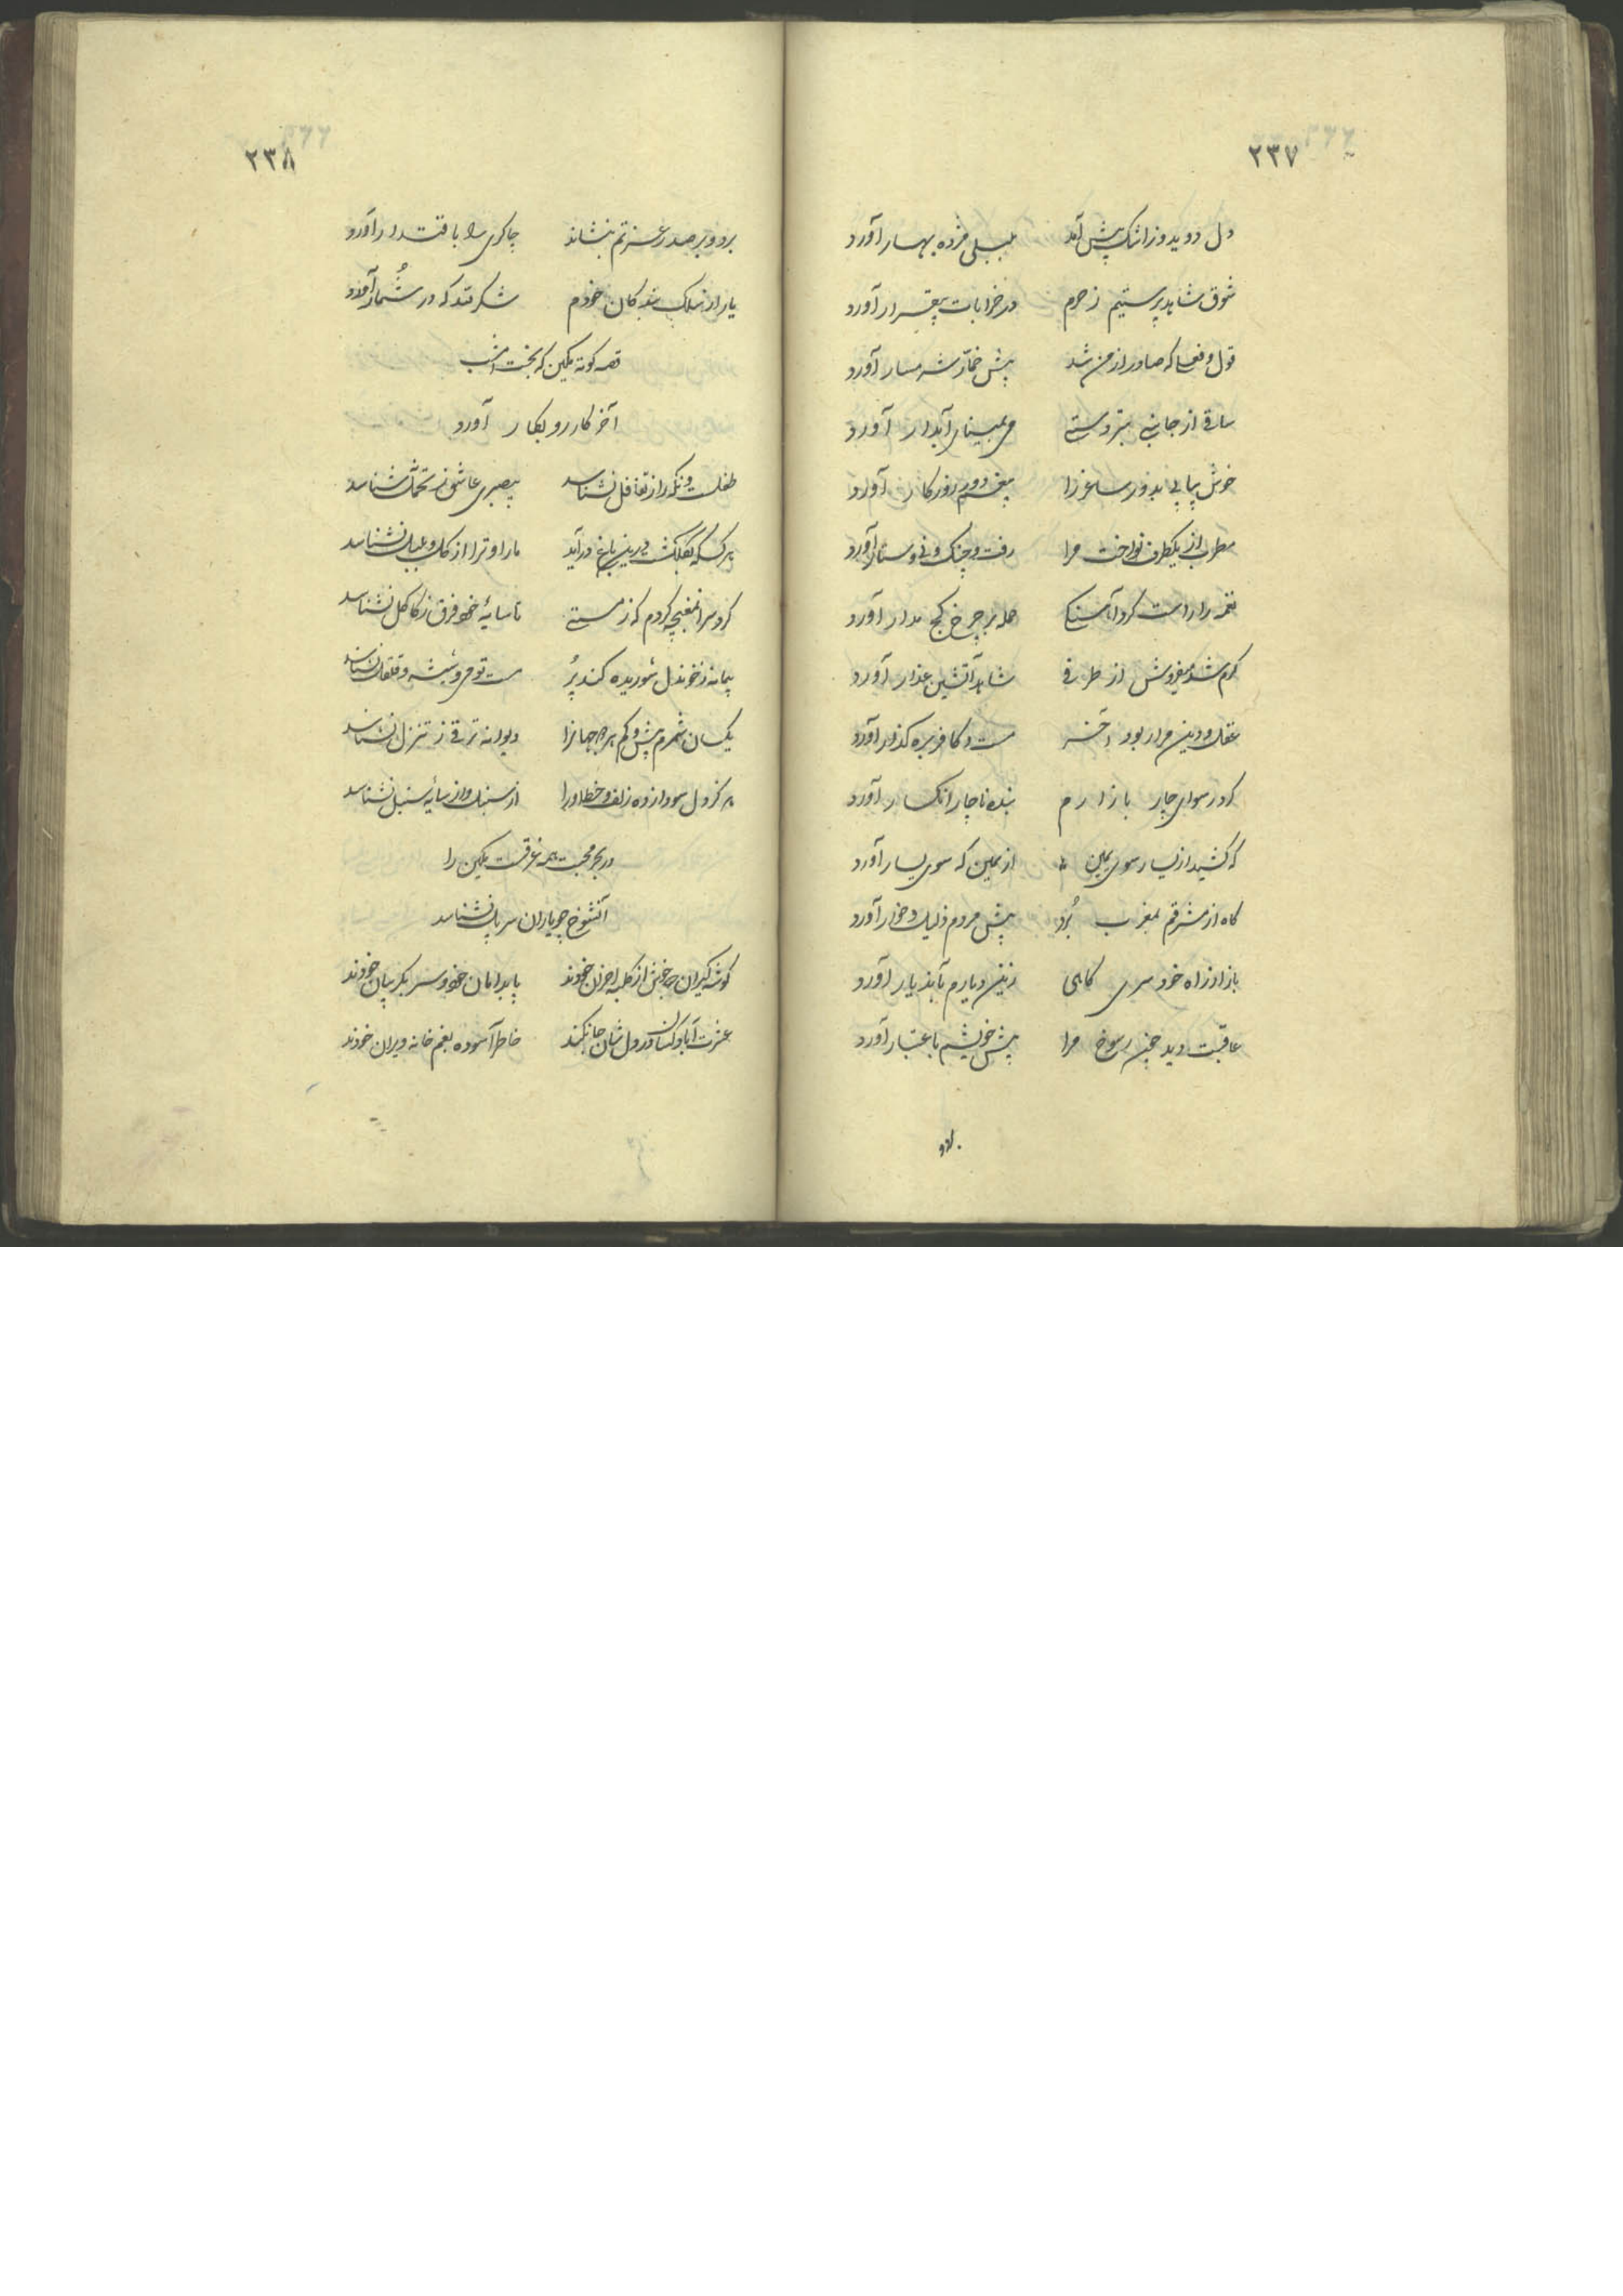 ۲۳۷
دل دوید و زاشک پیش آمد بلبلی مژده بهار آورد
شوق شاهد پرستیم ز حرم در خرابات بیقرار آورد
قول و فعلی که صادر از من شد پیش خمار شرمسار آورد
ساقی از جانبی بتردستی می بمینای آبدار آورد
خوش پیاپی بدور ساغر زا بیغم دور روزگار آورد
مطرب از یکطرف نواخت مرا رفت و چنگ و نی و ستار آورد
نغمه را راست کرد آهنگ حمله بر چرخ کج مدار آورد
گرم شد میفروش از طرفی شاهد آتشین عذار آورد
عقل و دین مرا ربود آخر مست و کافر بره گذار آورد
کرد رسوای چار بازارم بنده ناچار انکسار آورد
که کشید از یسار سوی یمین از یمین که سوی یسار آورد
گاه از مشرقم بمغرب بُرد پیش مردم ذلیل و خوار آورد
باز از راه خود سری گاهی زین دیارم بآن دیار آورد
عاقبت دید چون رسوخ مرا پیش خویشم باعتبار آورد
۲۳۸
برد و بر صدر عزتم بنشاند چاکری را باقتدار آورد
یار از سلک بندگان خودم شکر لله که در شُمار آورد
قصه کوته یکین که بخت امشب
آخر کار رو بکار آورد
طفلست و نگه را ز تغافل نشناسد بیصبری عاشق ز تحمل نشناسد
هر کس که بگلگشت درین باغ درآید ما را و ترا از گل و بلبل نشناسد
تا سایهٔ خود فرق ز کاکل نشناسد
پیمانه ز خون دل شوریده کند پُر مست تو می و شیشه و قلقل نشناسد
یکسان شمرم بیش و کم هر دو جهانرا دیوانه ترقی ز تنزل نشناسد
هرگز دل سودازده زلف و خط او را از سنبل و از سایهٔ سنبل نشناسد
در بحر محبت همه غرقست یکین را
آنشوخ چو یاران سر پل نشناسد
گوشه گیران چه خوش از کلبه احزان خودند پا بدامان خود و سر بگریبان خودند
عشرت آباد کسان در دل شان جا نکند خاطر آسوده بغم خانه ویران خودند